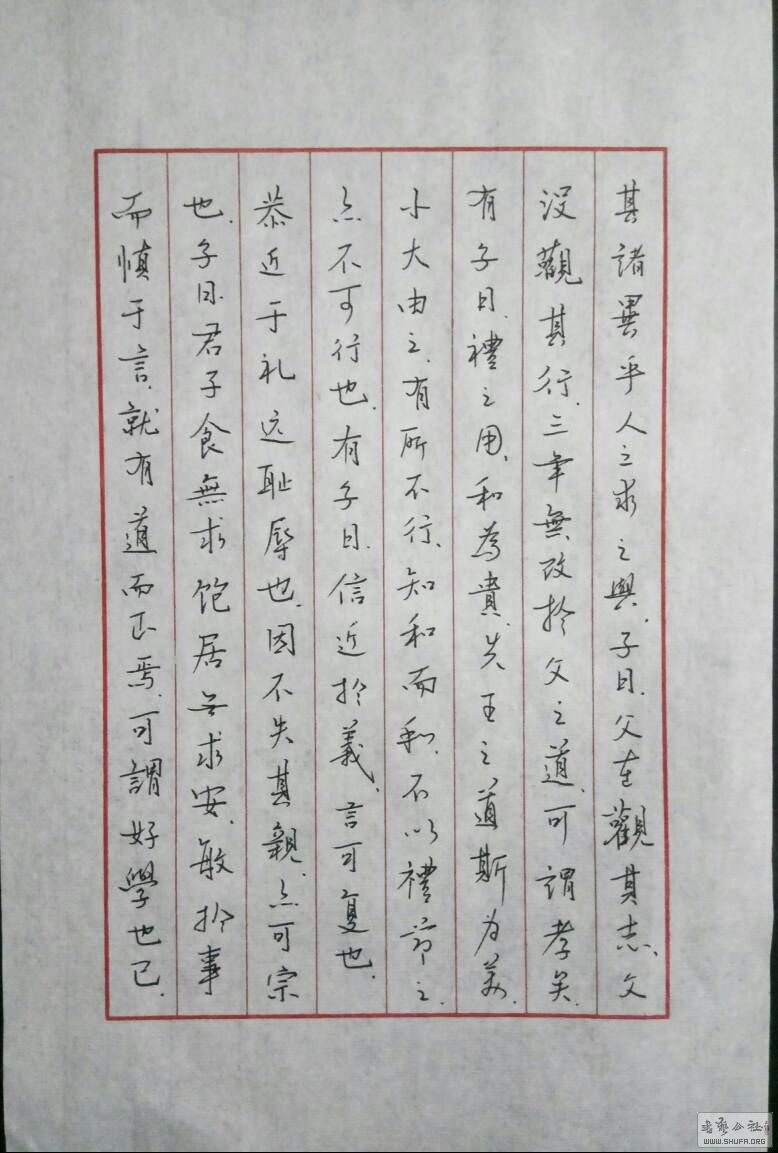 其諸異乎人之求之與.子曰.父在觀其志.父
没觀其行.三年無改於父之道.可謂孝矣
有子曰.禮之用.和為貴.先王之道斯为美.
小大由之.有所不行.知和而和.不以禮節之.
亦不可行也.有子曰.信近於義.言可复也.
恭近于礼远耻辱也.因不失其親.亦可宗
也.子曰.君子食無求饱居无求安.敏於事
而慎于言.就有道而正焉.可謂好學也已.
求艺公社
WWW.SHUFA.ORG